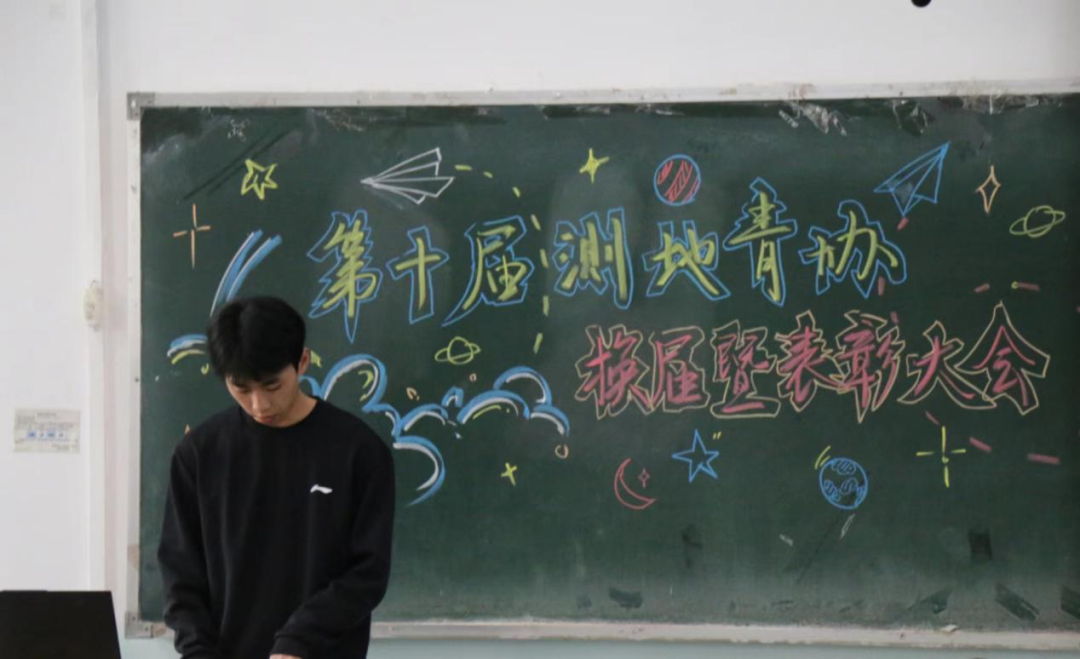 第十届测地青协
换届暨表彰大会